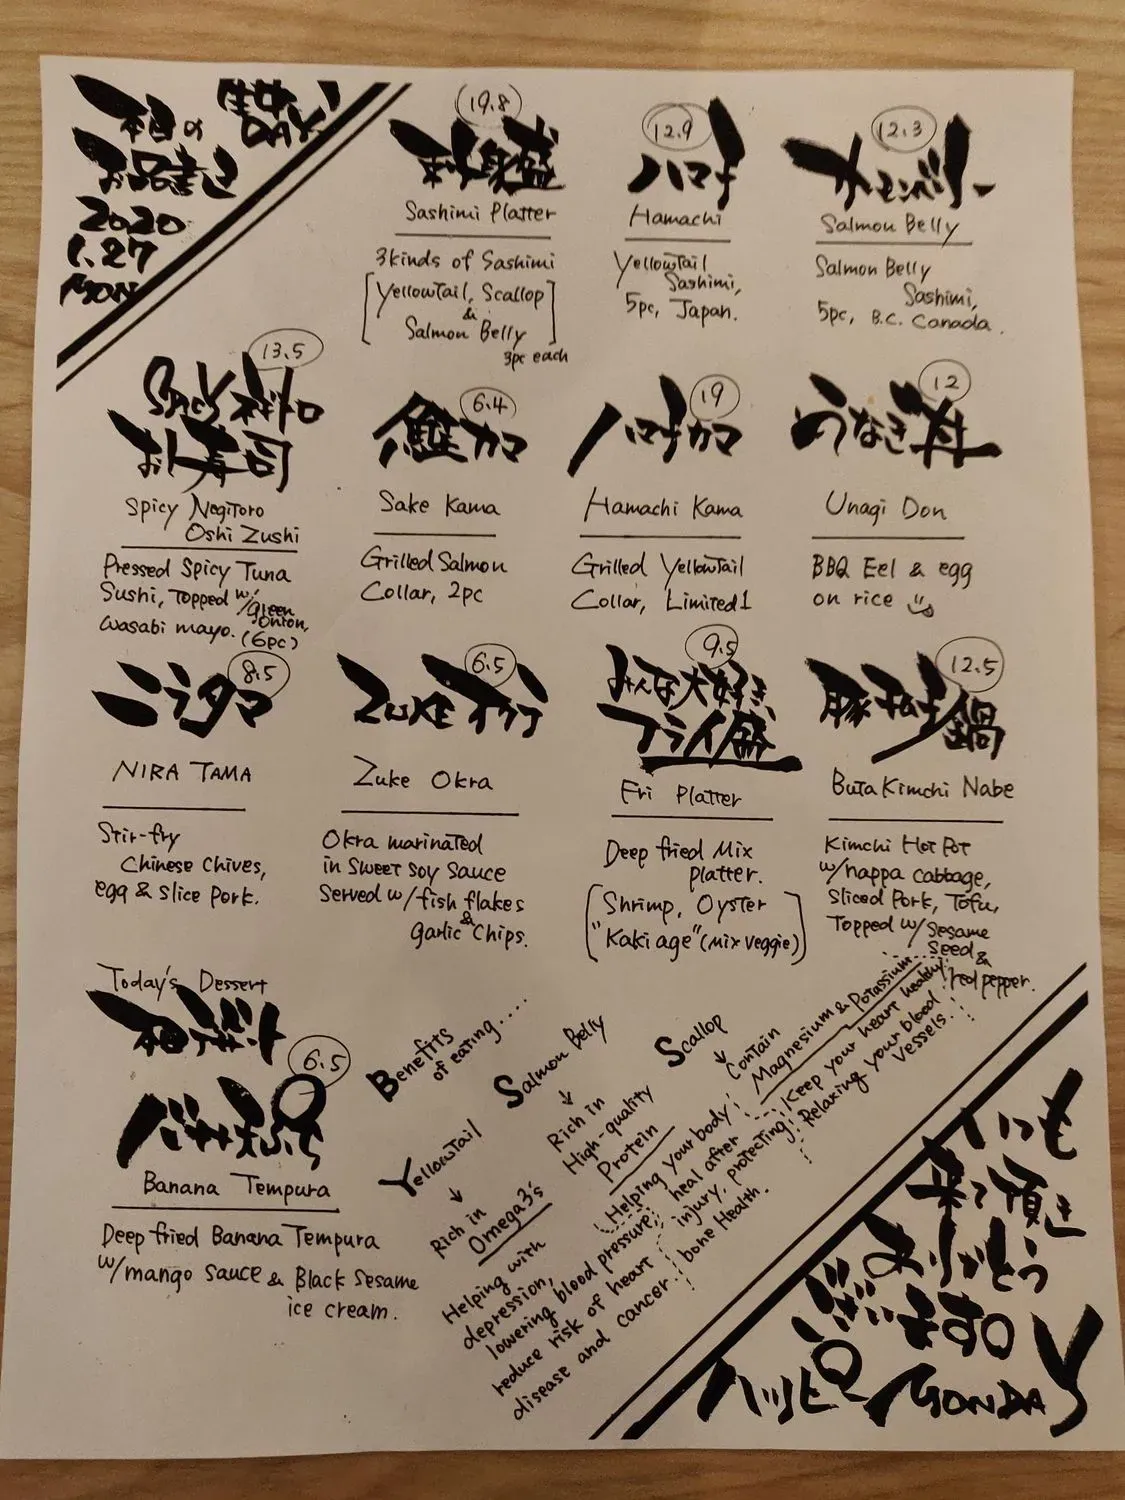 本日の
お品書き
2020
1.27
MON
DAY
19.8
刺身盛
Sashimi Platter
3kinds of Sashimi
[YellowTail, Scallop
&
Salmon Belly]
3pc each
12.9
ハマチ
Hamachi
YellowTail
Sashimi,
5pc, Japan.
12.3
サーモンベリー
Salmon Belly
Salmon Belly
Sashimi,
5pc, B.C. Canada.
13.5
SPICYネギトロ
お押し寿司
Spicy NegiToro
Oshi Zushi
Pressed Spicy Tuna
Sushi, Topped w/green
onion,
wasabi mayo. (6pc)
6.4
鮭カマ
Sake Kama
Grilled Salmon
Collar, 2pc
19
ハマチカマ
Hamachi Kama
Grilled YellowTail
Collar, Limited 1
12
うなぎ丼
Unagi Don
BBQ Eel & egg
on rice
8.5
ニラタマ
NIRA TAMA
Stir-fry
Chinese Chives,
egg & slice Pork.
6.5
ZUKEオクラ
Zuke Okra
Okra marinated
in sweet soy sauce
Served w/fish flakes
&
garlic chips.
9.5
みんな大好き
フライ盛
Fri Platter
Deep fried Mix
platter.
(Shrimp, Oyster
"Kakiage"(mix veggie))
12.5
豚キムチ鍋
Buta Kimchi Nabe
Kimchi Hot Pot
w/nappa cabbage,
Sliced Pork, Tofu,
Topped w/sesame
seed &
red pepper.
Today's Dessert
本日デザート
6.5
バナナ天ぷら
Banana Tempura
Deep fried Banana Tempura
w/mango sauce & Black sesame
ice cream.
Benefits
of eating....
YellowTail
Rich in
Omega3's
Helping with
depression,
lowering blood pressure,
reduce risk of heart
disease and cancer.
Salmon Belly
Rich in
High-quality
Protein
Helping your body
heal after
injury, protecting
bone Health.
Scallop
Contain
Magnesium & Potassium
Keep your heart healthy
Relaxing your blood
Vessels.
いつも
来て頂き
ありがとう
ございます
ハッピーMONDAY